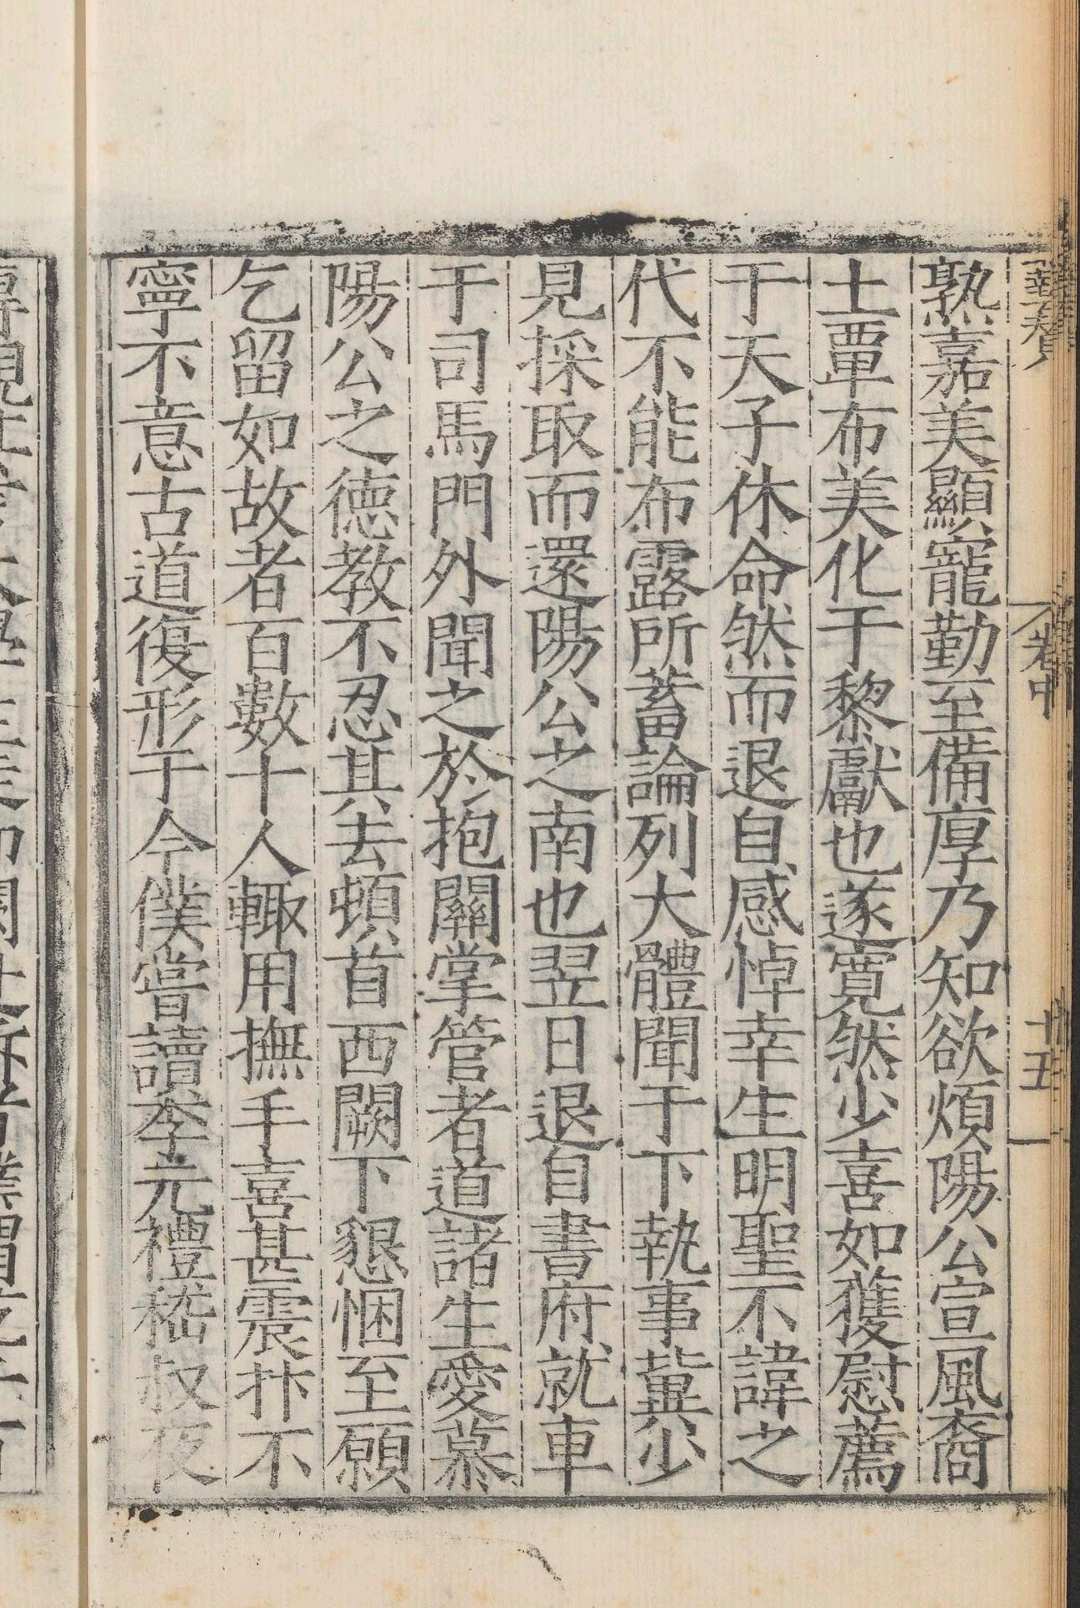 熟嘉美顯寵勤至備厚乃知欲煩陽公宣風裔
土覃布美化于黎獻也遂寬然少喜如獲慰薦
于天子休命然而退自感悼幸生明聖不諱之
代不能布露所蓄論列大體聞于下執事冀少
見採取而還陽公之南也翌日退自書府就車
于司馬門外聞之於抱關掌管者道諸生愛慕
陽公之德教不忍其去頓首西闕下懇悃至願
乞留如故者百數十人輙用撫手喜甚震抃不
寧不意古道復形于今僕嘗讀李元禮嵇叔夜
卷中
十五